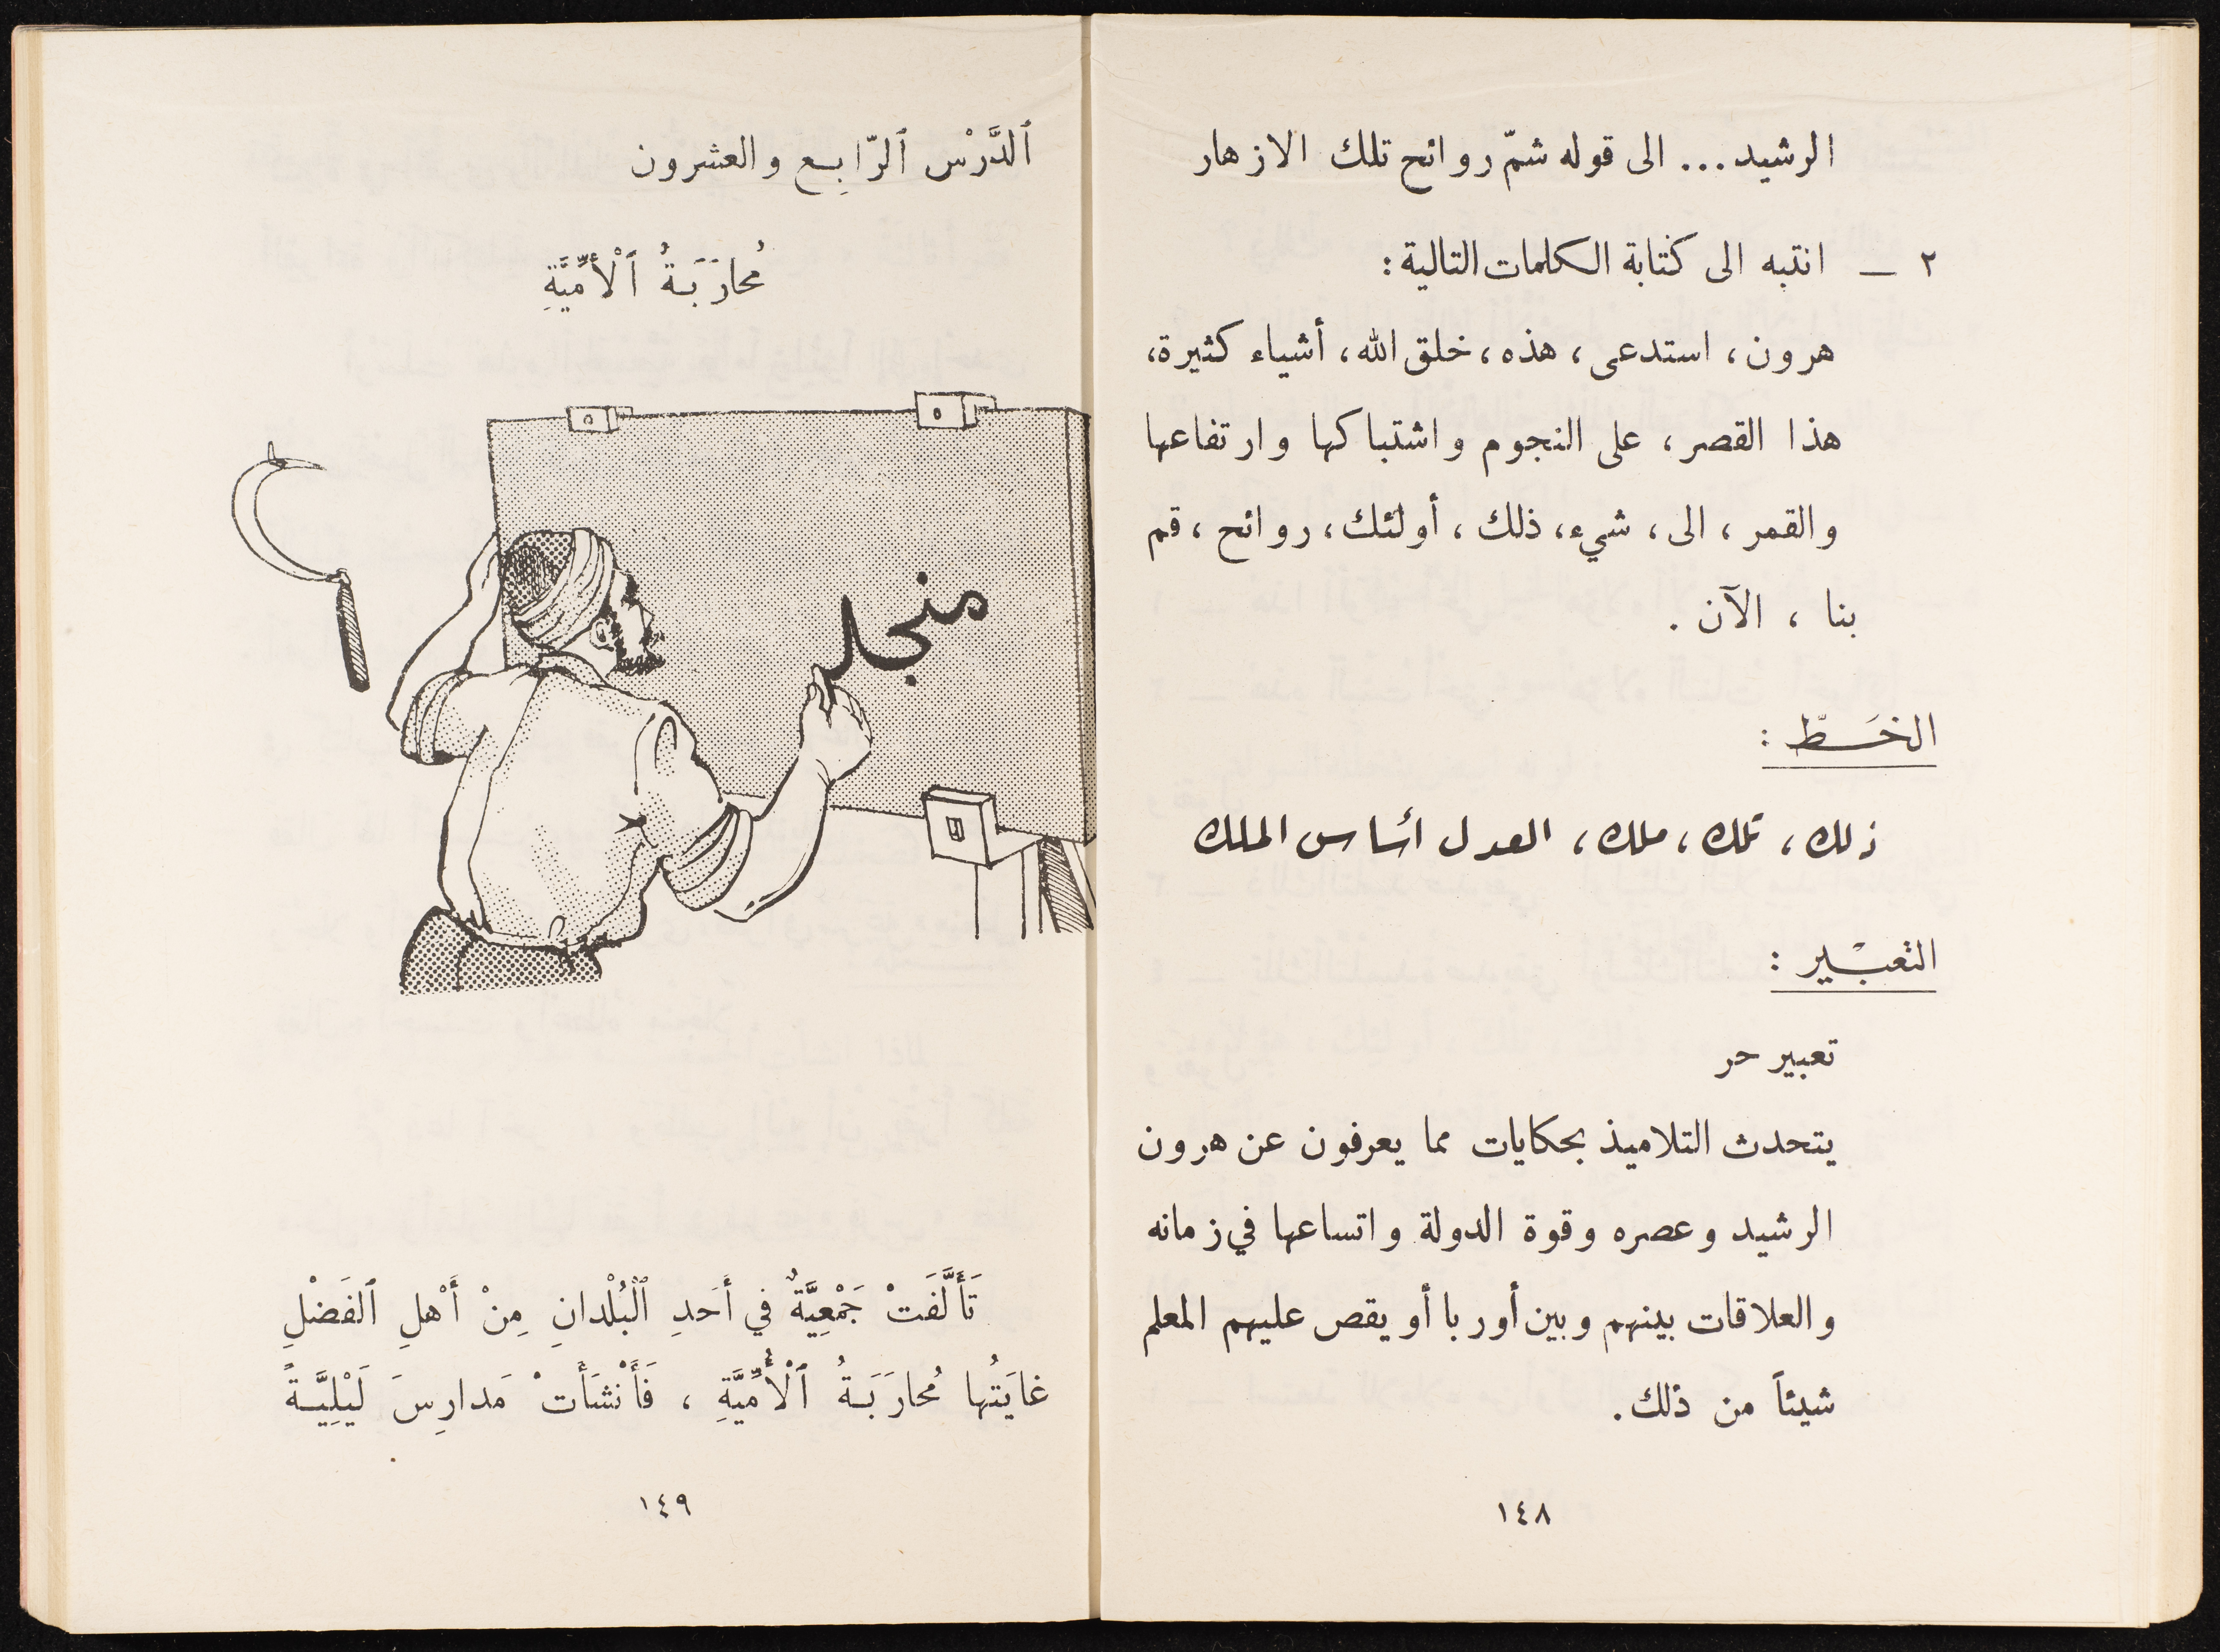 الرشيد... الى قوله شمّ روائح تلك الازهار
٢ — انتبه الى كتابة الكلمات التالية:
هرون، استدعى، هذه، خلق الله، أشياء كثيرة،
هذا القصر، على النجوم واشتباكها وارتفاعها
والقمر، الى، شيء، ذلك، أولئك، روائح، قم
بنا، الآن.
الخَـطّ:
ذلك، تلك، ملك، العدل أساس الملك
التعبْـير:
تعبير حر
يتحدث التلاميذ بحكايات مما يعرفون عن هرون
الرشيد وعصره وقوة الدولة واتساعها في زمانه
والعلاقات بينهم وبين أوربا أو يقص عليهم المعلم
شيئاً من ذلك.
١٤٨
ٱلدَّرْس ٱلرّابِـع والعشرون
مُحارَبَـةُ ٱلْأُمِّيَّةِ
منجل
تَأَلَّفَتْ جَمْعِيَّةٌ في أَحَدِ ٱلْبُلْدانِ مِنْ أَهْلِ ٱلفَضْلِ
غايَتُها مُحارَبَـةُ ٱلْأُمِّيَّةِ، فَأَنْشَأَتْ مَدارِسَ لَيْلِيَّـةً
١٤٩